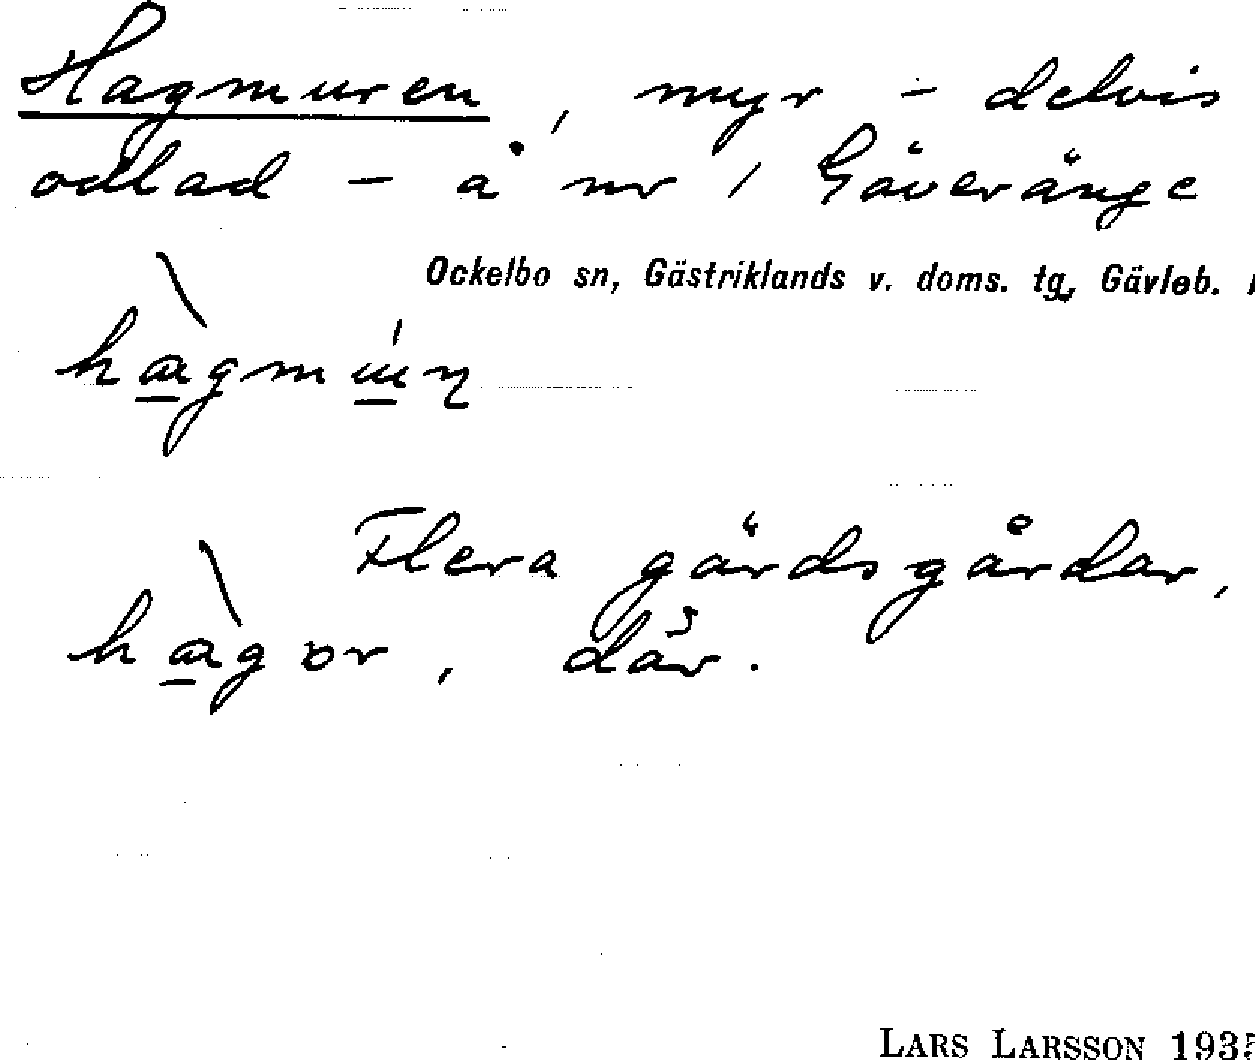 Hagmuren, myr - delvis
odlad - å nr 1 Gäveränge
Ockelbo sn, Gästriklands v. doms. tg, Gävleb.
Flera gärdsgårdar,
där.
LARS LARSSON 193